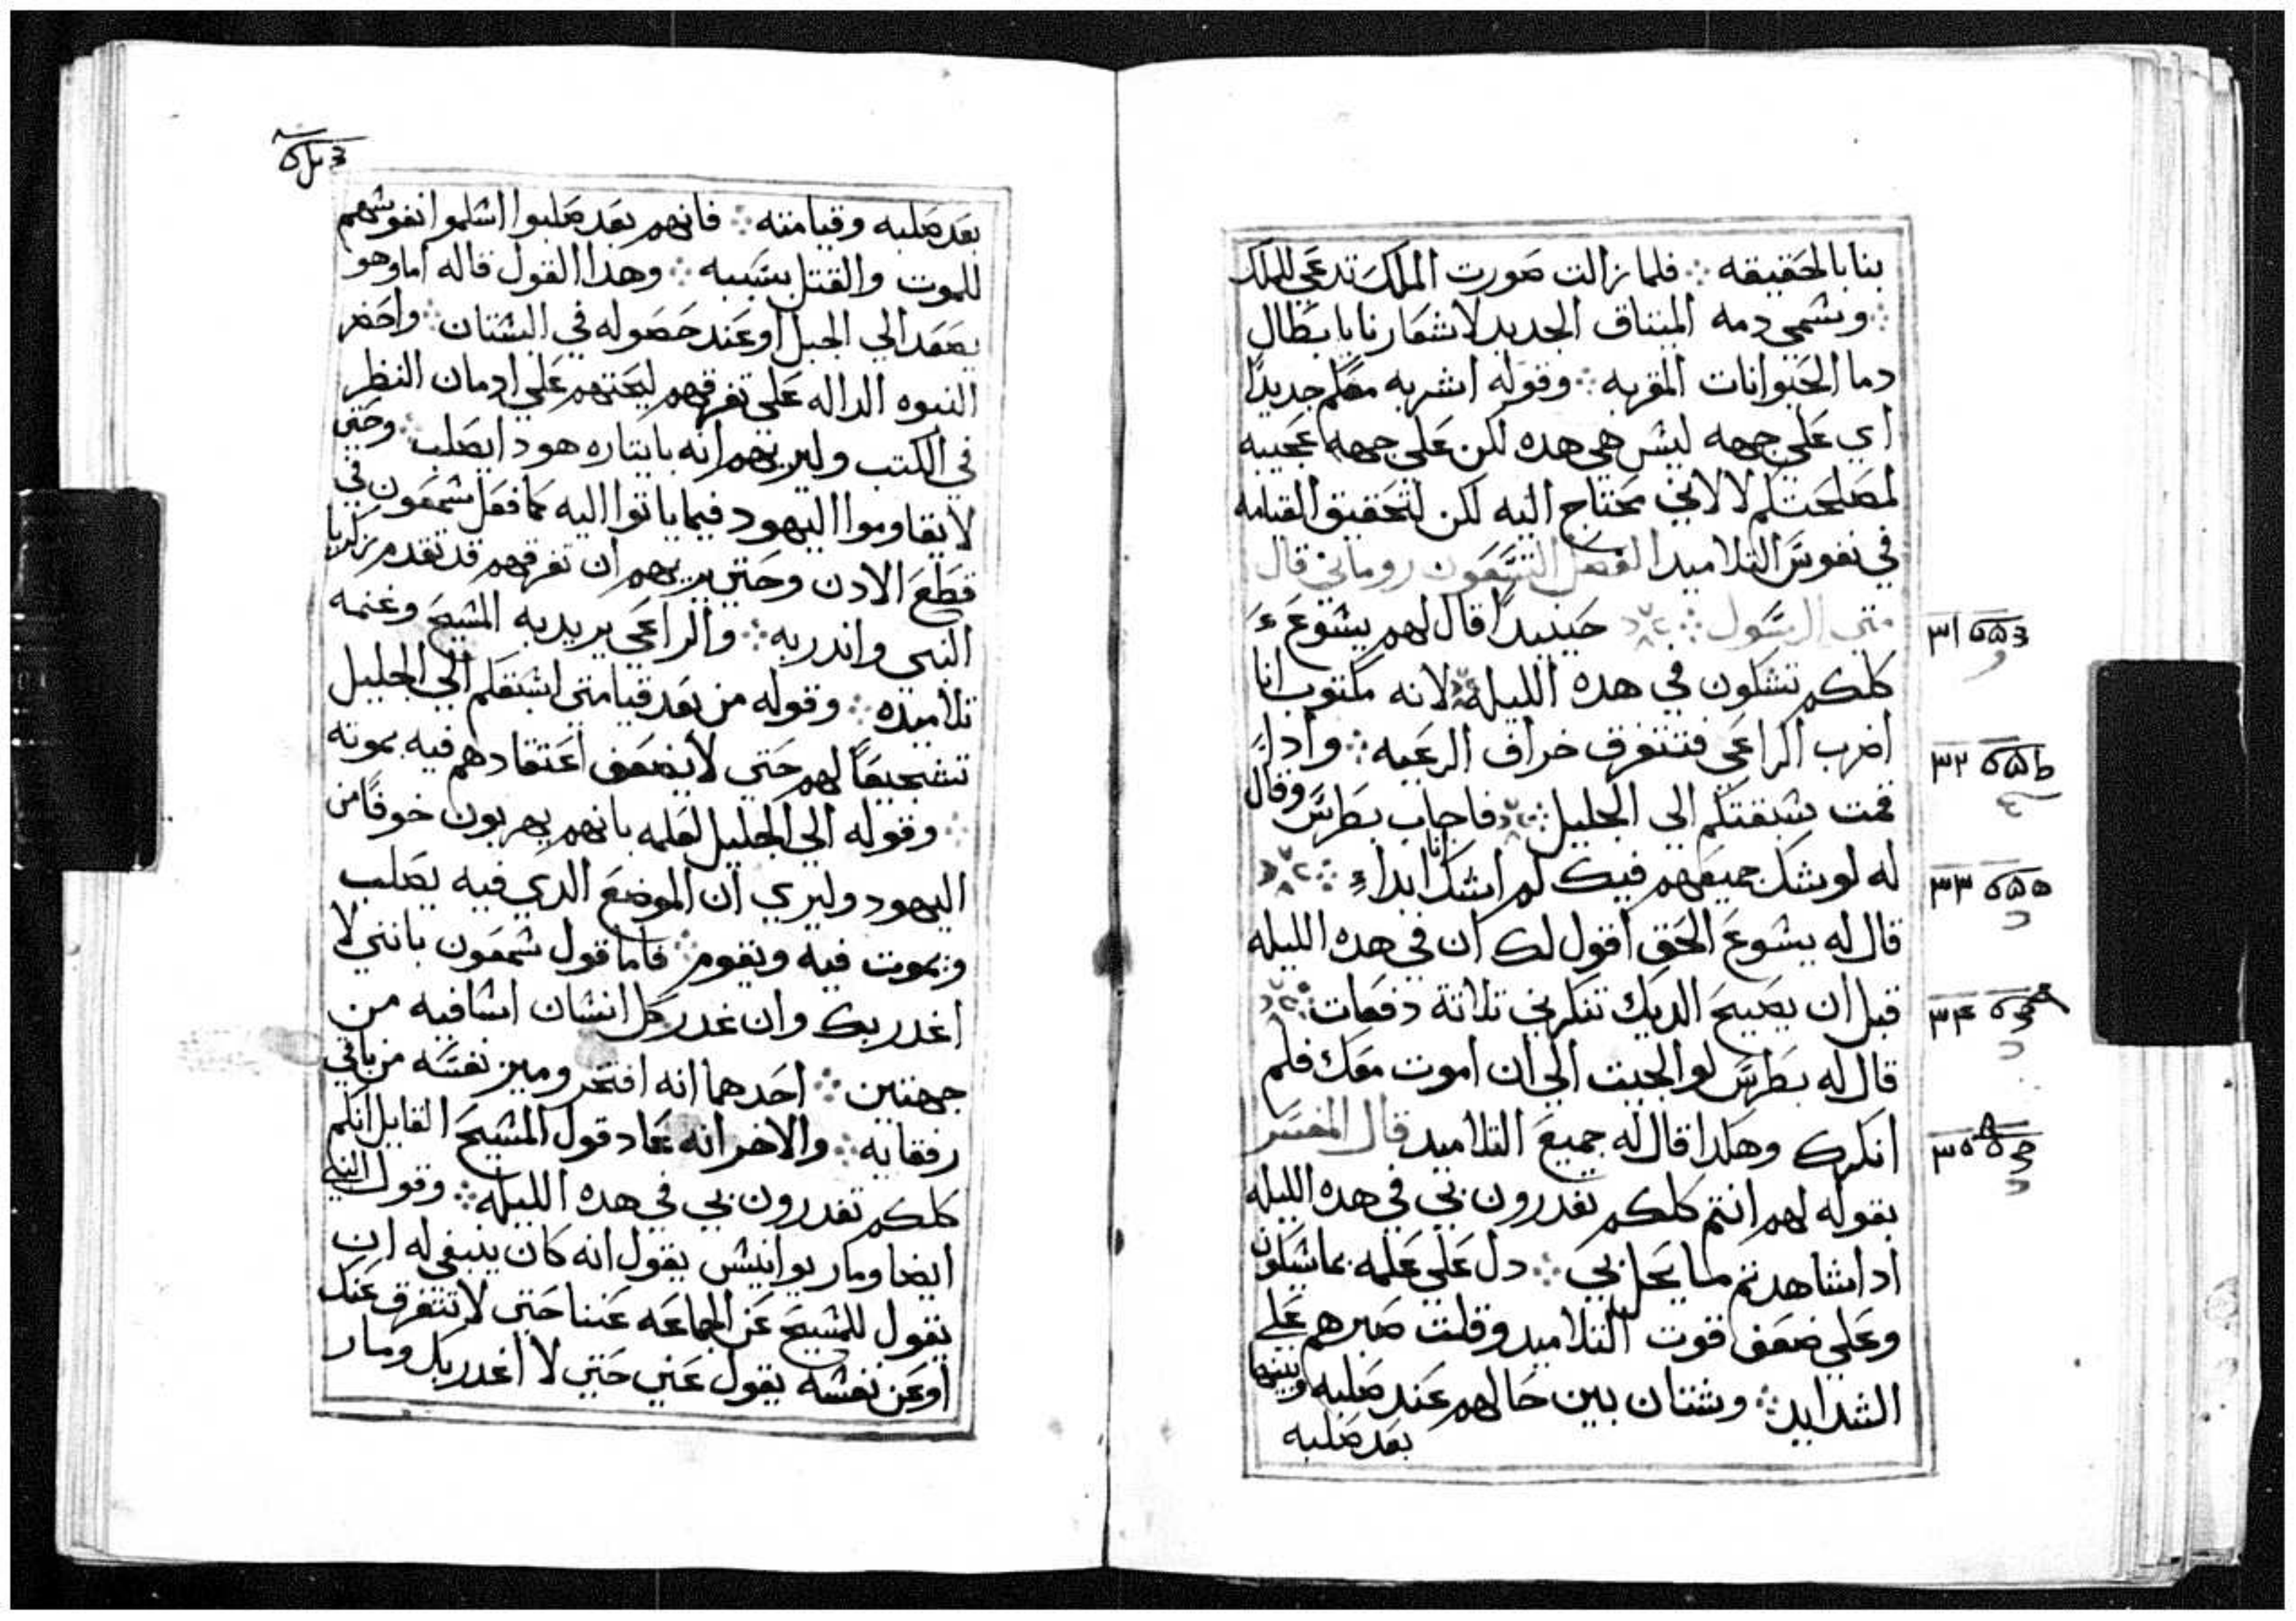 بنا بالحقيقه ∴ فلما زالت صورت الملك تدعي للملك
∴ ويسمي دمه الميتاق الجديد لاشعارنا بابطال
دما الحيوانات المقربه ∴ وقوله اشربه معكم جديدًا
اي علي جهه ليس هي هده لكن علي جهه عجيبه
لمصلحتكم لا لانني محتاج اليه لكن لتحقيق القيامه
في نفوس التلاميد الفصل التسعون روماني قال
متي الرسول ∴ حينيدًا قال لهم يشوع
كلكم تشكون في هده الليله لانه مكتوب انا
اضرب الراعي فتتفرق خراف الرعيه ∴ وادا
قمت سبقتكم الي الجليل ∴ فاجاب بطرس وقال
له لو يشك جميعهم فيك لم اشك انا ابداء ∴
قال له يشوع الحق اقول لك ان في هده الليله
قبل ان يصيح الديك تنكرني تلاتة دفعات ∴
قال له بطرس لو الجيت الي ان اموت معك فلم
انكرك وهكدا قال له جميع التلاميد قال المفسر
بقوله لهم انتم كلكم تغدرون بي في هده الليله
ادا شاهدتم ما يحل بي ∴ دل علي علمه بما سيكون
وعلي ضعف قوت التلاميد وقلت صبرهم علي
الشدايد ∴ وشتان بين حالهم عند صلبه وبينها
بعد صلبه
٣١
٣٢
٣٣
٣٤
٣٥
بعد صلبه وقيامته ∴ فانهم بعد صلبوا اسلموا انفوسهم
للموت والقتل بسببه ∴ وهدا القول قاله اما وهو
يصعد الي الجبل او عند حصوله في البستان ∴ واحضر
النبوه الداله علي تفرقهم ليحتهم علي ادمان النظر
في الكتب وليريهم انه بايتاره هودا يصلب ∴ وحتي
لا يقاوموا اليهود فيما ياتوا اليه كما فعل شمعون في
قطع الادن وحتي يريهم ان تفرقهم قد تقدم زكريا
النبي واندر به ∴ والراعي يريد به المسيح وغنمه
تلاميده ∴ وقوله من بعد قيامتي اسبقكم الي الجليل
تشجيعًا لهم حتي لا يضعف اعتقادهم فيه بموته
∴ وقوله الي الجليل لعلمه بانهم يهربون خوفًا من
اليهود وليري ان الموضع الدي فيه يصلب
ويموت فيه ويقوم ∴ فاما قول شمعون بانني لا
اغدر بك وان غدر كل انسان اسا فيه من
جهتين ∴ احدهما انه افتخر وميز نفسه من باقي
رفقايه ∴ والاخر انه عاد قول المسيح القايل انكم
كلكم تغدرون بي في هده الليله ∴ وقول النبي
ايضا ومار يوانيس يقول انه كان ينبغي له ان
يقول للمسيح عن الجماعه عننا حتي لا نتفرق عنك
او عن نفسه يقول عني حتي لا اغدر بك ومار